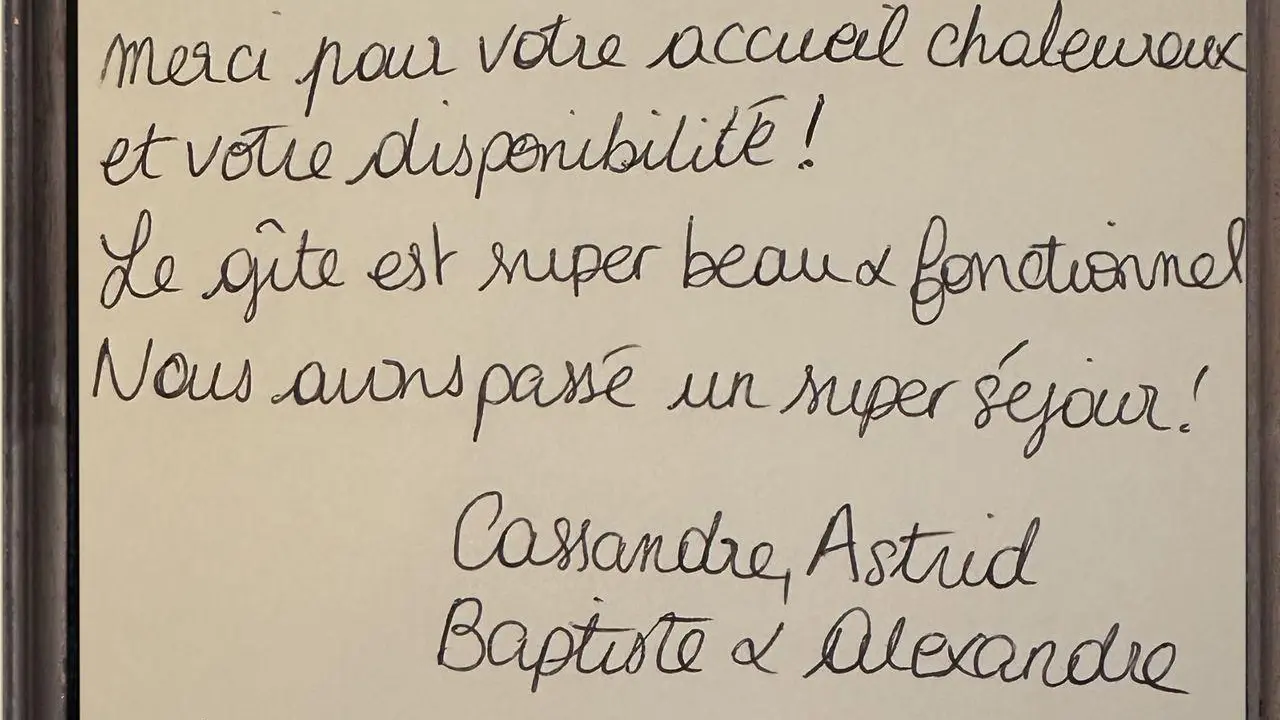 Merci pour votre accueil chaleureux
et votre disponibilité !
Le gîte est super beau & fonctionnel
Nous avons passé un super séjour !
Cassandre, Astrid
Baptiste & Alexandre